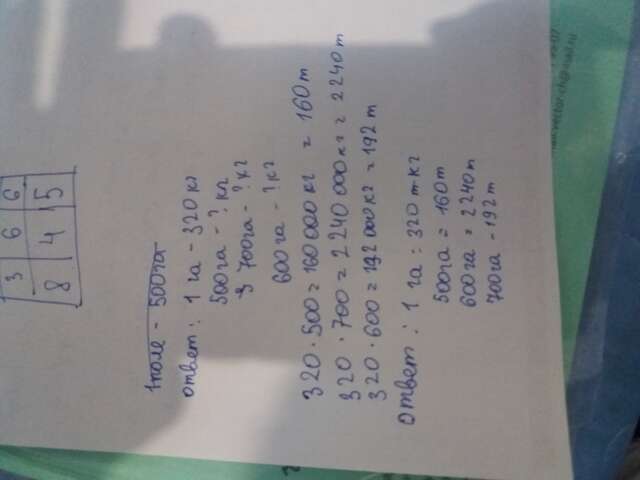 3 6 6
8 4 5
1 поле - 500 га
ответ: 1 га - 320 кг
500 га - ? кг
700 га - ? кг
600 га - ? кг
320 · 500 = 160 000 кг = 160 т
320 · 700 = 2240 000 кг = 2240 т
320 · 600 = 192 000 кг = 192 т
ответ: 1 га = 320 т кг
500 га = 160 т
600 га = 2240 т
700 га - 192 т
vector-ch@mail.ru